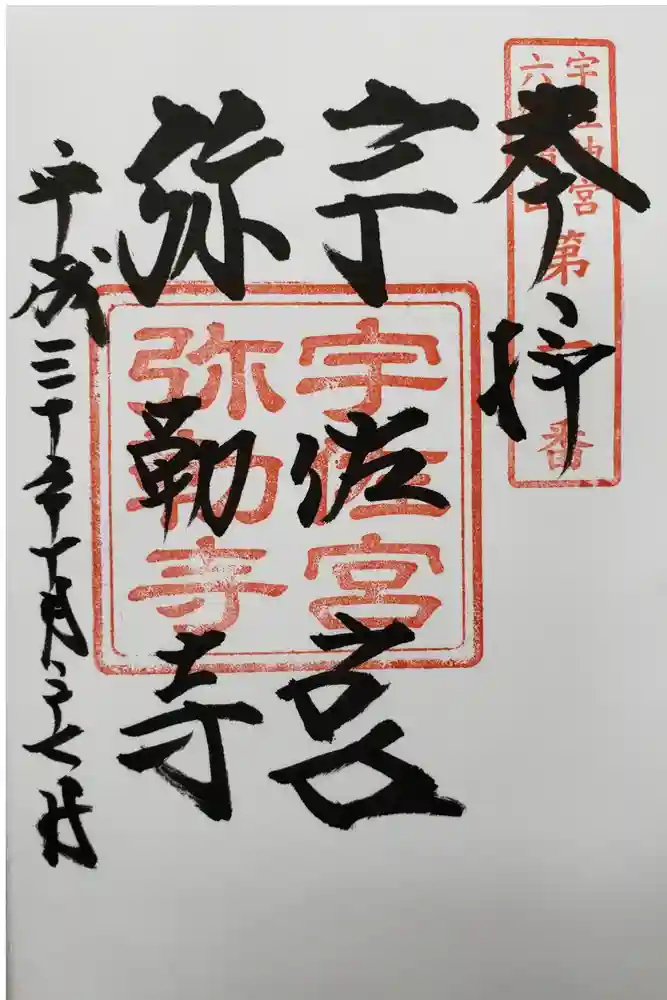 宇佐神宮
六郷満山
第一番
奉拝
宇佐宮
弥勒寺
宇佐宮
弥勒寺
平成三十年十月二十七日